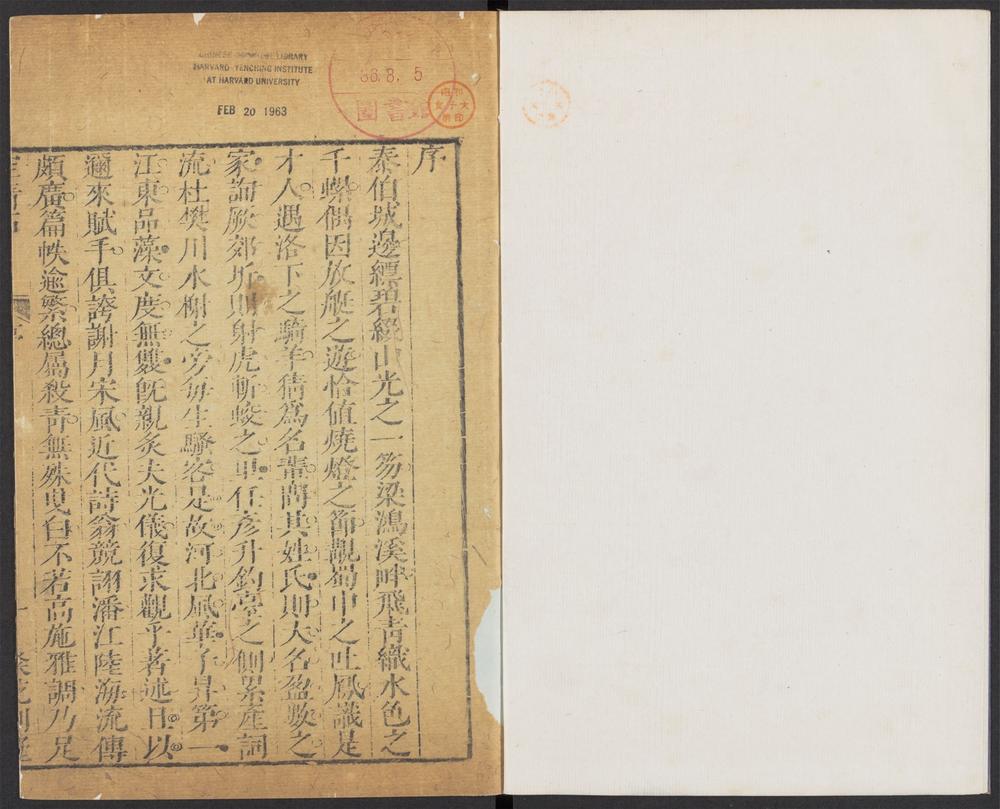 HARVARD-YENCHING INSTITUTE
AT HARVARD UNIVERSITY
FEB 20 1963
8. 5
圖書館
序
泰伯城邊縹碧綴山光之一笏梁鴻溪畔飛青織水色之
千螺偶因放艇之遊恰值燒燈之節覩蜀中之吐鳳識是
才人遇洛下之騎羊猜爲名輩問其姓氏則大名盈數之
家詢厥郊圻則射虎斬蛟之里任彥升釣臺之側累產詞
流杜樊川水榭之旁每生騷客是故河北風華子昇第一
江東品藻文度無雙旣親炙夫光儀復求觀乎著述且以
邇來賦手俱誇謝月宋風近代詩翁競詡潘江陸海流傳
頗廣篇帙逾繁總屬殺青無殊曳白不若高施雅調乃足